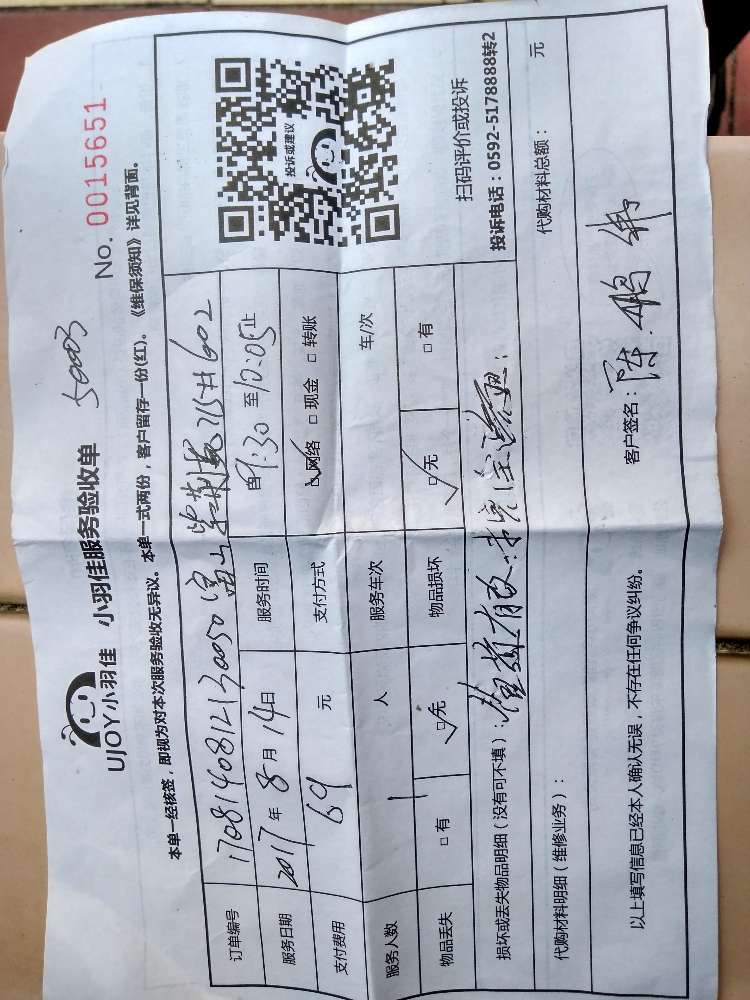 UJOY小羽佳 小羽佳服务验收单 50003
No. 0015651
本单一经核签，即视为对本次服务验收无异议。本单一式两份，客户留存一份(红)。《维保须知》详见背面。
订单编号 1708140812130050 715#602
服务日期 2017年8月14日 服务时间 自9:30至10:05止
支付费用 69 元 支付方式 ☑网络 □现金 □转账
服务人数 1 人 服务车次 车/次
物品丢失 □有 ☑无 物品损坏 ☑无 □有
投诉或建议
扫码评价或投诉
投诉电话：0592-5178888转2
损坏或丢失物品明细（没有可不填）：
代购材料明细（维修业务）： 代购材料总额： 元
以上填写信息已经本人确认无误，不存在任何争议纠纷。 客户签名：陈